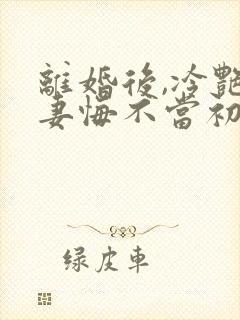 離婚後,冷艷
妻悔不當初
绿皮車